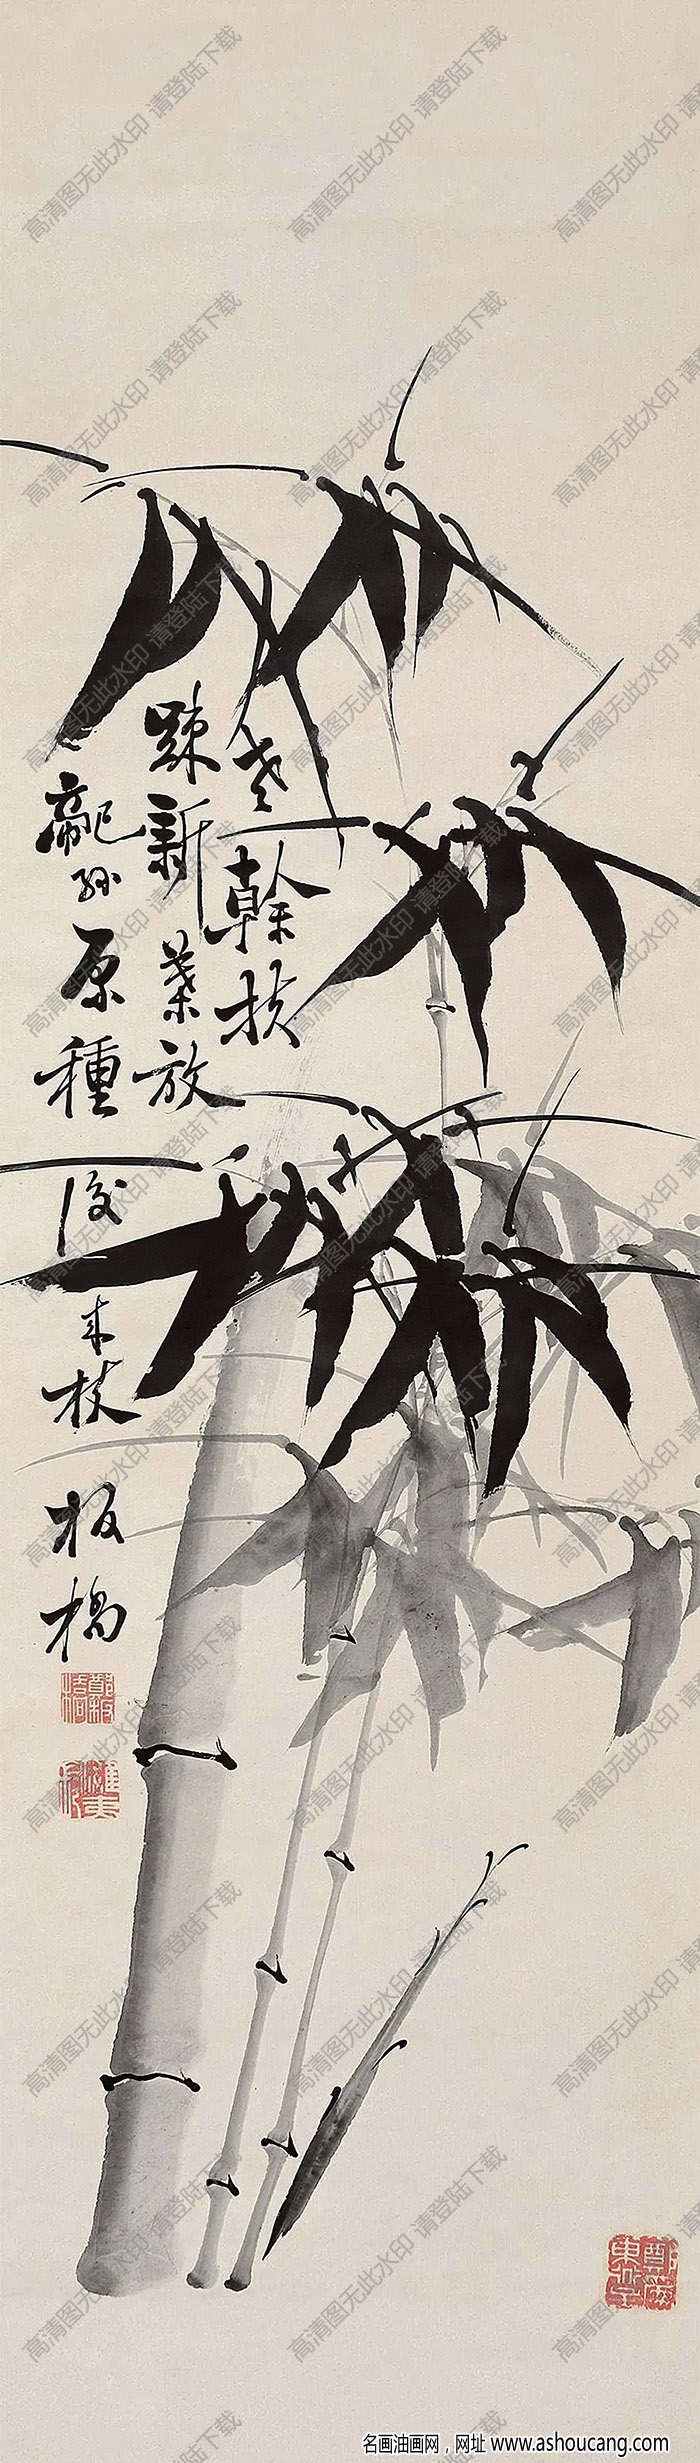 老幹扶
踈新葉放
龍孫原種後來枝
板橋
鄭板橋
高清图无此水印 请登陆下载
名画油画网，网址 www.ashoucang.com